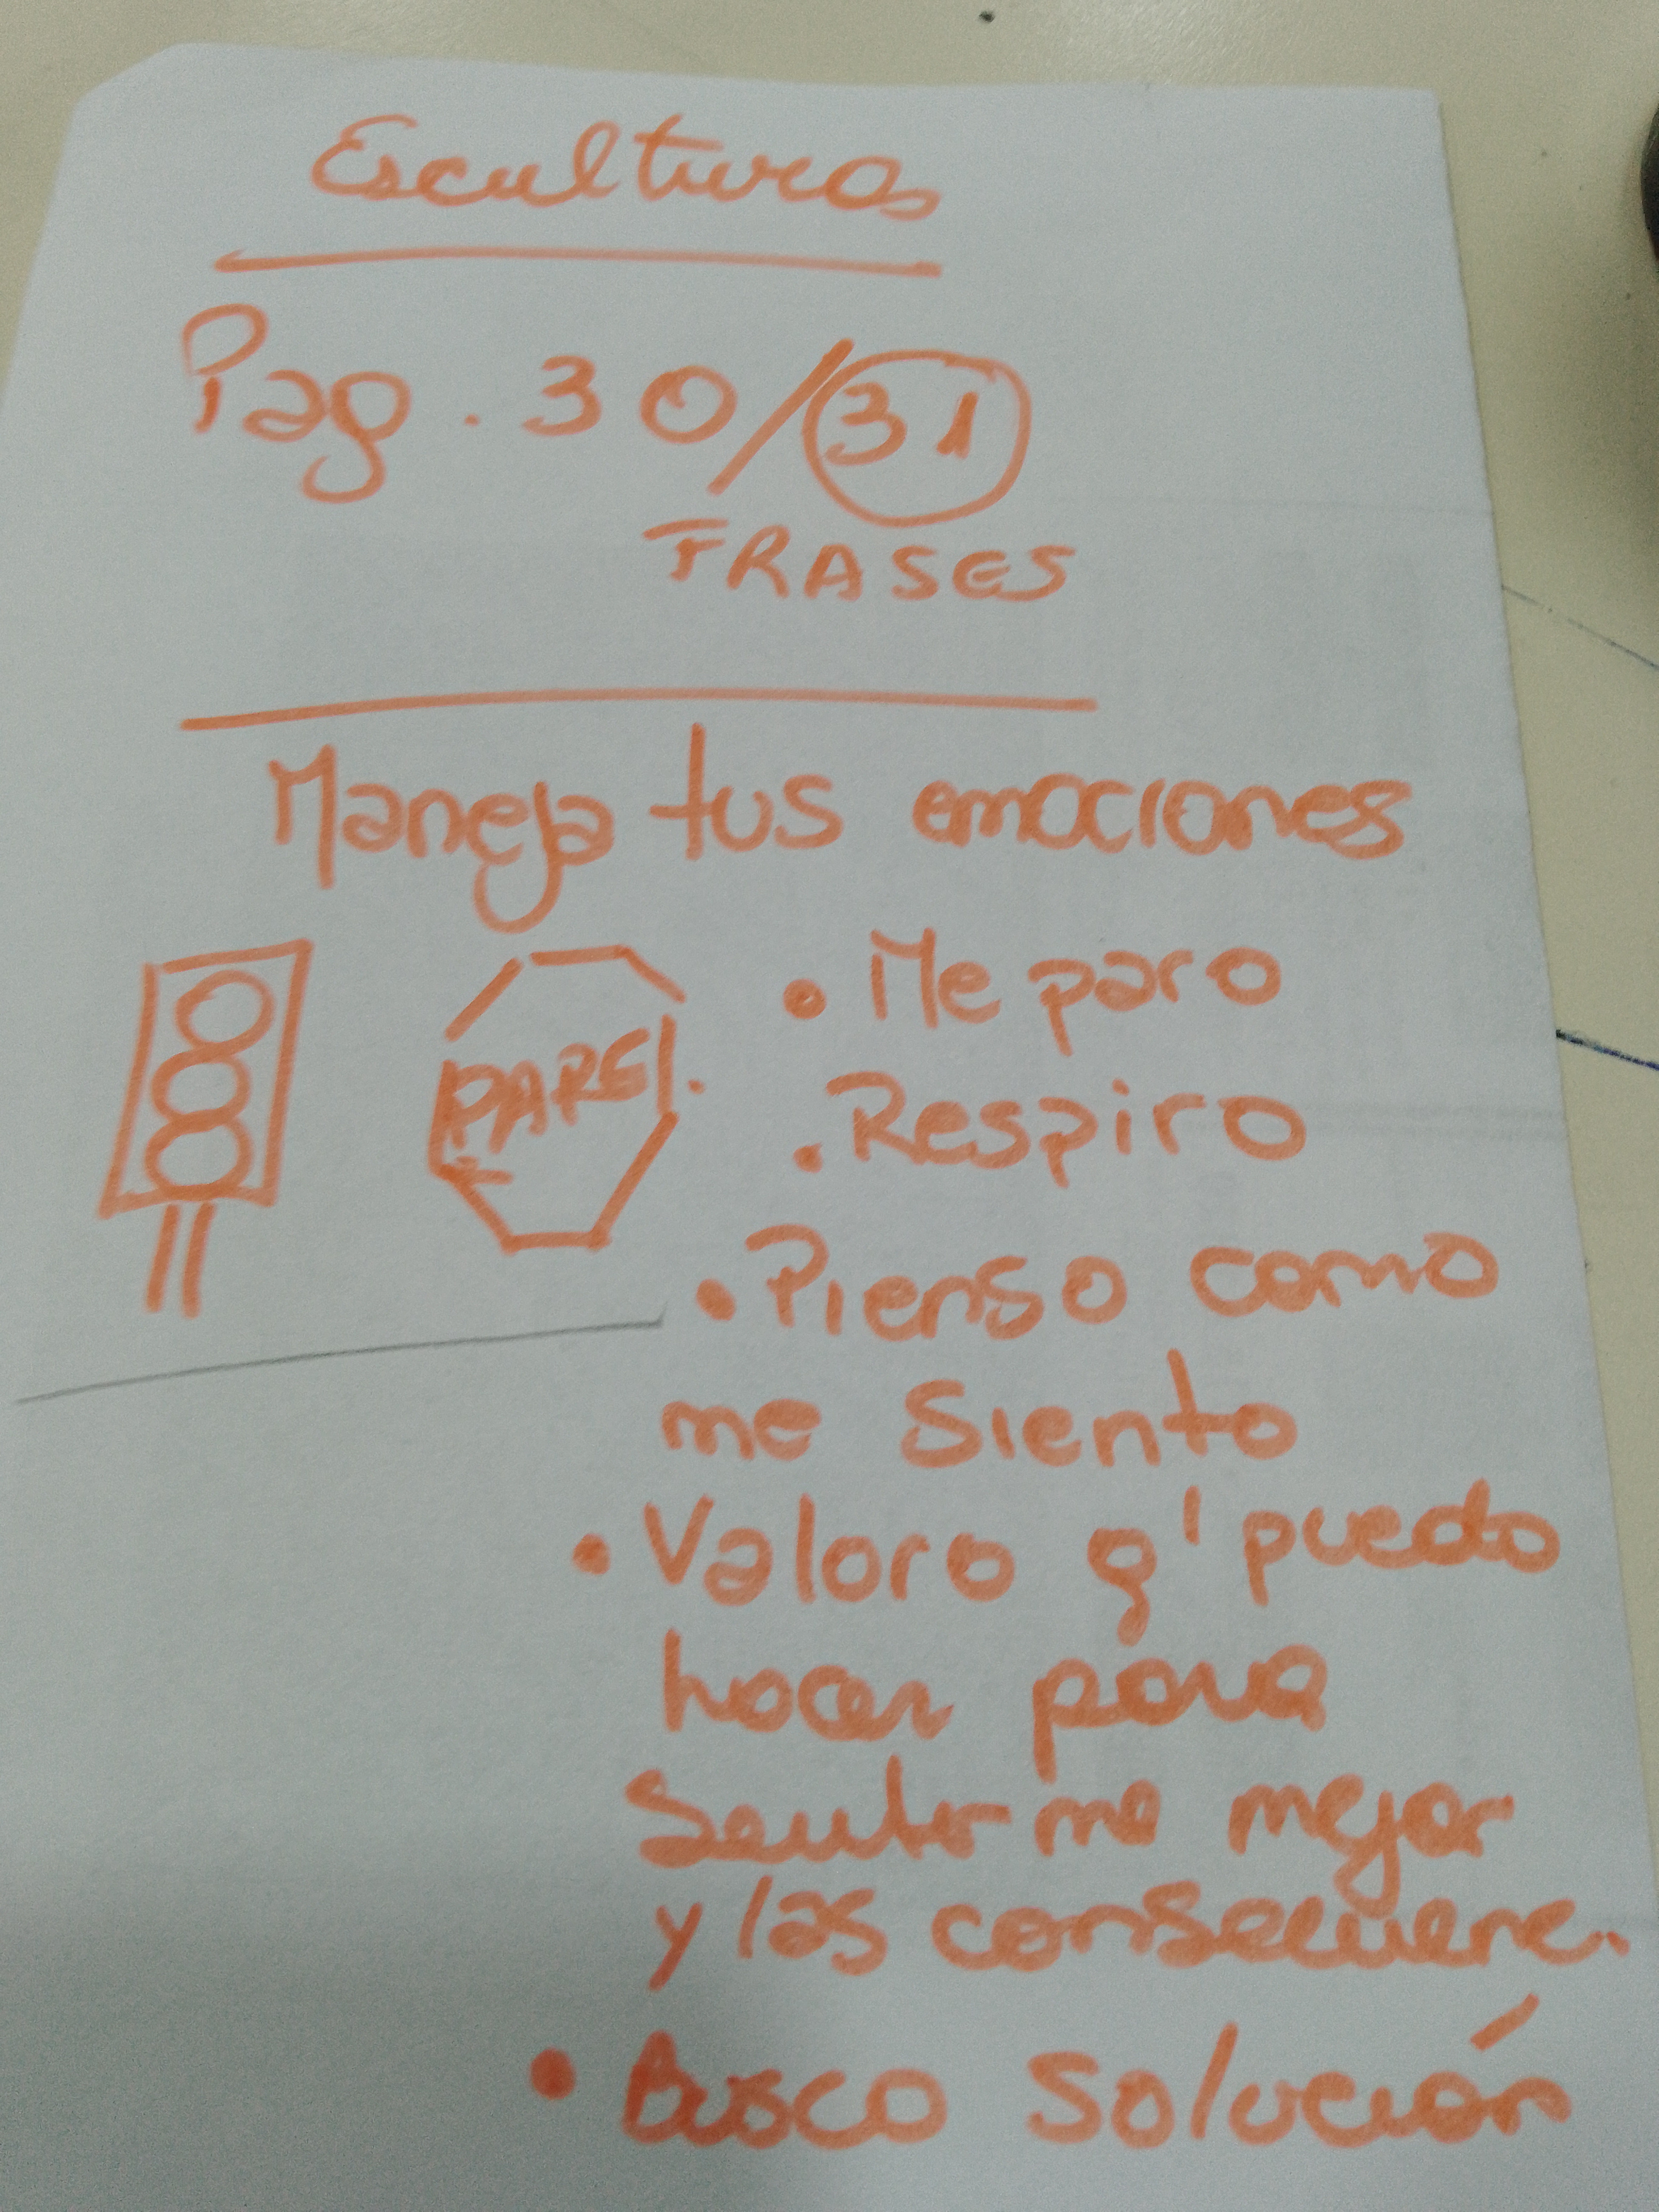 Esculturas
Pag. 30/31
FRASES
Maneja tus emociones
PARE
• Me paro
• Respiro
• Pienso como
me siento
• Valoro q' puedo
hacer para
Sentirme mejor
y las consecuenc.
• Busco solución